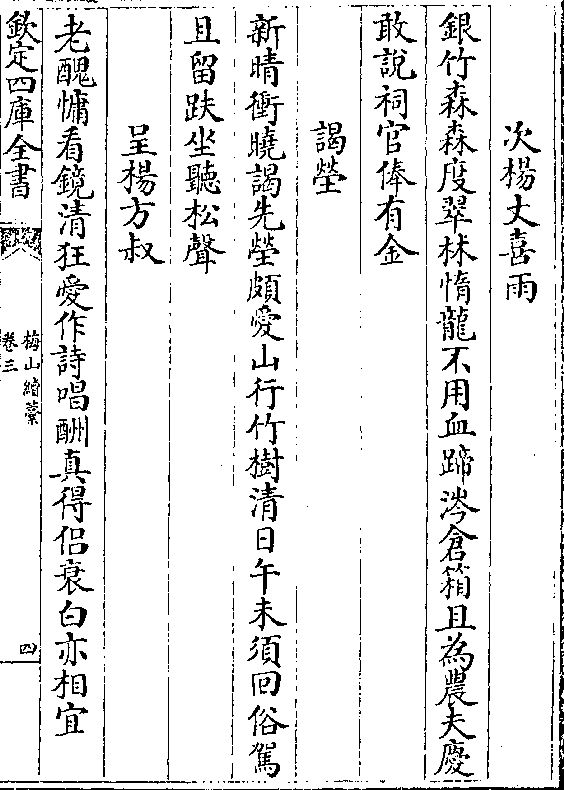 次楊丈喜雨
銀竹森森度翠林惰龍不用血蹄涔倉箱且為農夫慶
敢說祠官俸有金
謁塋
新晴衝曉謁先塋頗愛山行竹樹清日午未須回俗駕
且留趺坐聽松聲
呈楊方叔
老醜慵看鏡清狂愛作詩唱酬真得侣衰白亦相宜
欽定四庫全書
梅山續藁
卷三
四